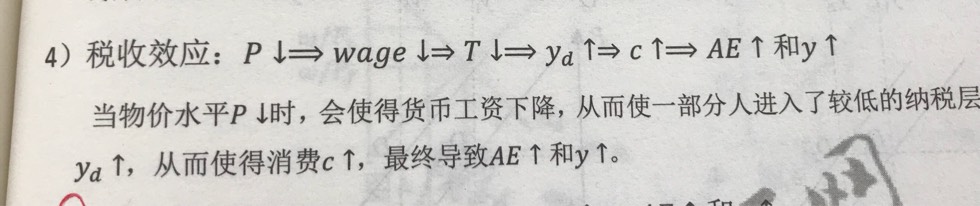 4）税收效应：P ↓⟹ wage ↓⟹ T ↓⟹ y_d ↑⟹ c ↑⟹ AE ↑ 和y ↑
当物价水平P ↓时，会使得货币工资下降，从而使一部分人进入了较低的纳税层
y_d ↑，从而使得消费c ↑，最终导致AE ↑ 和y ↑。